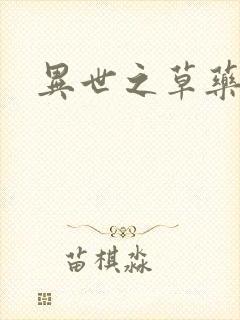 異世之草藥
苗棋淼